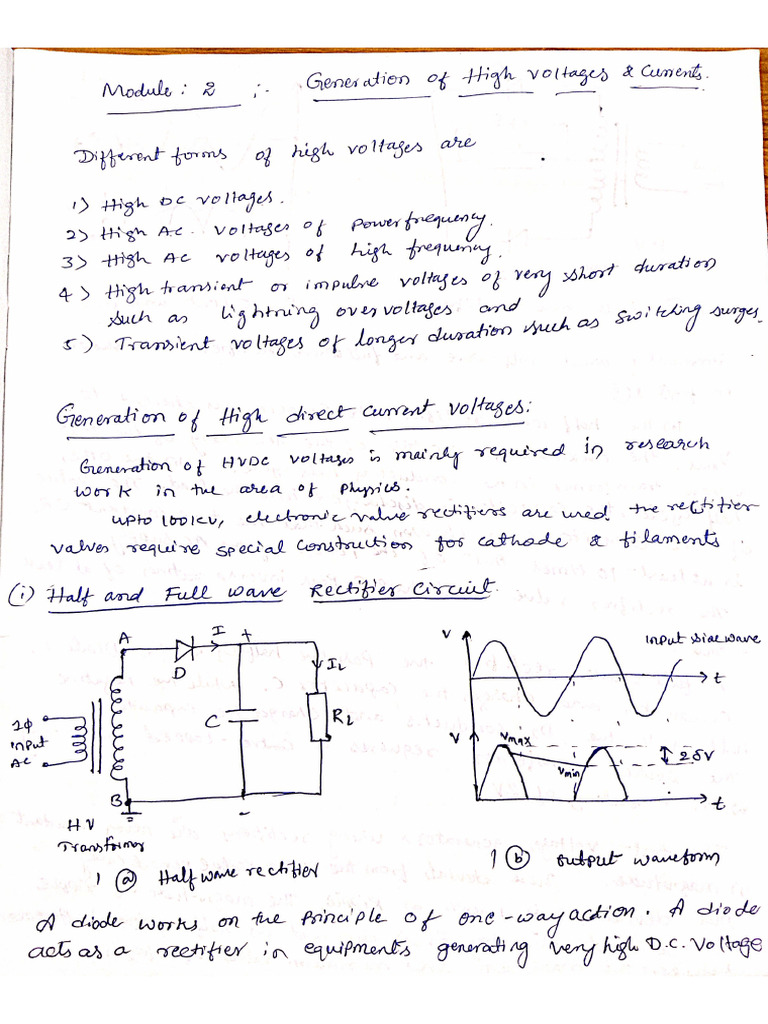 Module: 2 :- Generation of High voltages & Currents.
Different forms of high voltages are
1) High DC voltages.
2) High AC. voltages of powerfrequency.
3) High AC voltages of high frequency.
4) High transient or impulse voltages of very short duration
such as lightning over voltages and
5) Transient voltages of longer duration such as switching surges.
Generation of High direct current voltages:
Generation of HVDC voltages is mainly required in research
work in the area of Physics.
upto 100kV, electronic valve rectifiers are used. the rectifier
valves require special construction for cathode & filaments.
(i) Half and Full wave Rectifier Circuit.
A
I
+
D
IL
C
RL
1φ
input
AC
B
-
HV
Transformer
1 (a) Half wave rectifier
V
input sine wave
t
V
Vmax
Vmin
2δV
t
1 (b) output waveform
A diode works on the principle of one-way action. A diode
acts as a rectifier in equipments generating very high D.C. Voltage